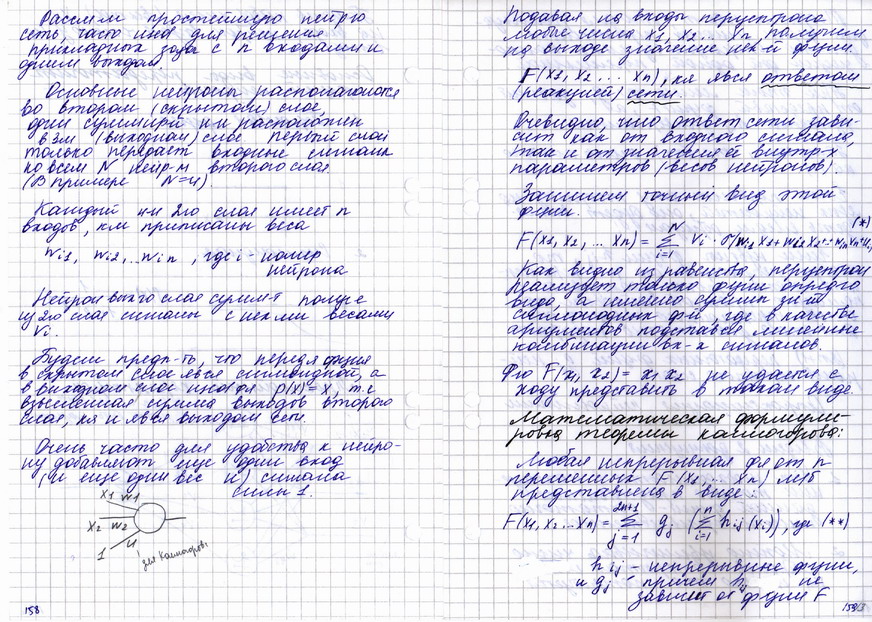 Рассм-м простейшую нейр-ю
сеть, часто исп-ю для решения
прикладных задач с n входами и
одним выходом
Основные нейроны располагаются
во втором (скрытом) слое,
один суммир-й н-н расположен
в 3-м (выходном) слое первый слой
только передает входные сигналы
ко всем N нейр-м второго слоя.
(В примере N=4).
Каждый н-н 2го слоя имеет n
входов, к-м приписаны веса
Wi1, Wi2, ... Win, где i - номер
нейрона
Нейрон вых-го слоя суммир-т
из 2го слоя сигналы с нек-ми весами
Vi.
Будем предп-ть, что перед-я функция
в скрытом слое явл-ся сигмоидной, а
в выходном слое φ(x)=x, т.е.
взвешенная сумма выходов второго
слоя, к-я и явл-ся выходом сети.
Очень часто для удобства к нейро-
ну добавляют еще один вход
(и еще один вес u) сигнала
силы 1.
X1 W1
X2 W2
1 u
158
Подавая на входы персептрона
любые числа x1, x2... xn, получим
на выходе значение нек-й ф-ции.
F(x1, x2, ... xn), к-я явл-ся ответом
(реакцией) сети.
Очевидно, что ответ сети зави-
сит как от входного сигнала,
так и от значений внутр-х
параметров (весов нейронов).
Запишем точный вид этой
ф-ции.
(*)
F(x1, x2, ... xn) = ∑ i=1 N Vi · σ(wi1 x1 + wi2 x2 + ... + win xn + ui
Как видно из равенства, персептрон
реализует только ф-ции опред-го
вида, а именно суммы зн-й
сигмоидных ф-й, где в качестве
аргументов подставл-ся линейные
комбинации вх-х сигналов.
Ф-ю F(x1, x2) = x1 x2 не удается с
ходу представить в таком виде.
Математическая формули-
ровка теоремы Колмогорова:
Любая непрерывная ф-я от n
переменных F(x1, ... xn) м.б.
представлена в виде:
F(x1, x2, ... xn) = ∑ j=1 2n+1 gj (∑ i=1 n hij (xi)), где (**)
hij - непрерывные ф-ции,
и gj - причем hij не
зависит от ф-ции F